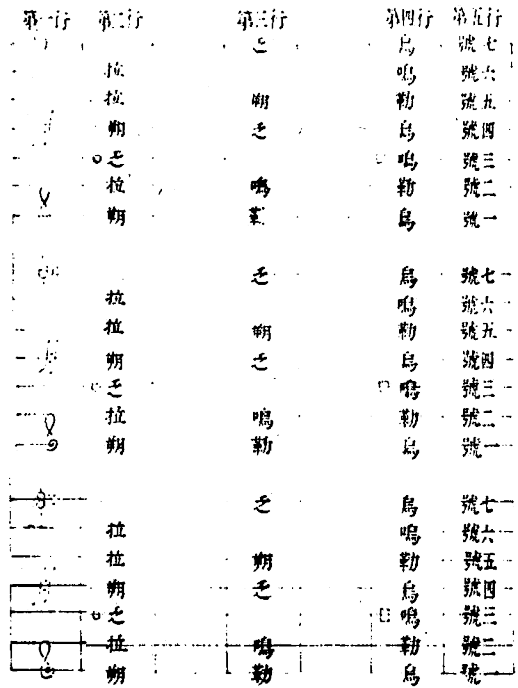 第一行 第二行 第三行 第四行 第五行
乏 烏 號七
拉 鳴 號六
拉 朔 勒 號五
朔 乏 烏 號四
乏 鳴 號三
拉 鳴 勒 號二
朔 勒 烏 號一
乏 烏 號七
拉 鳴 號六
拉 朔 勒 號五
朔 乏 烏 號四
乏 鳴 號三
拉 鳴 勒 號二
朔 勒 烏 號一
乏 烏 號七
拉 鳴 號六
拉 朔 勒 號五
朔 乏 烏 號四
乏 鳴 號三
拉 鳴 勒 號二
朔 勒 烏 號一